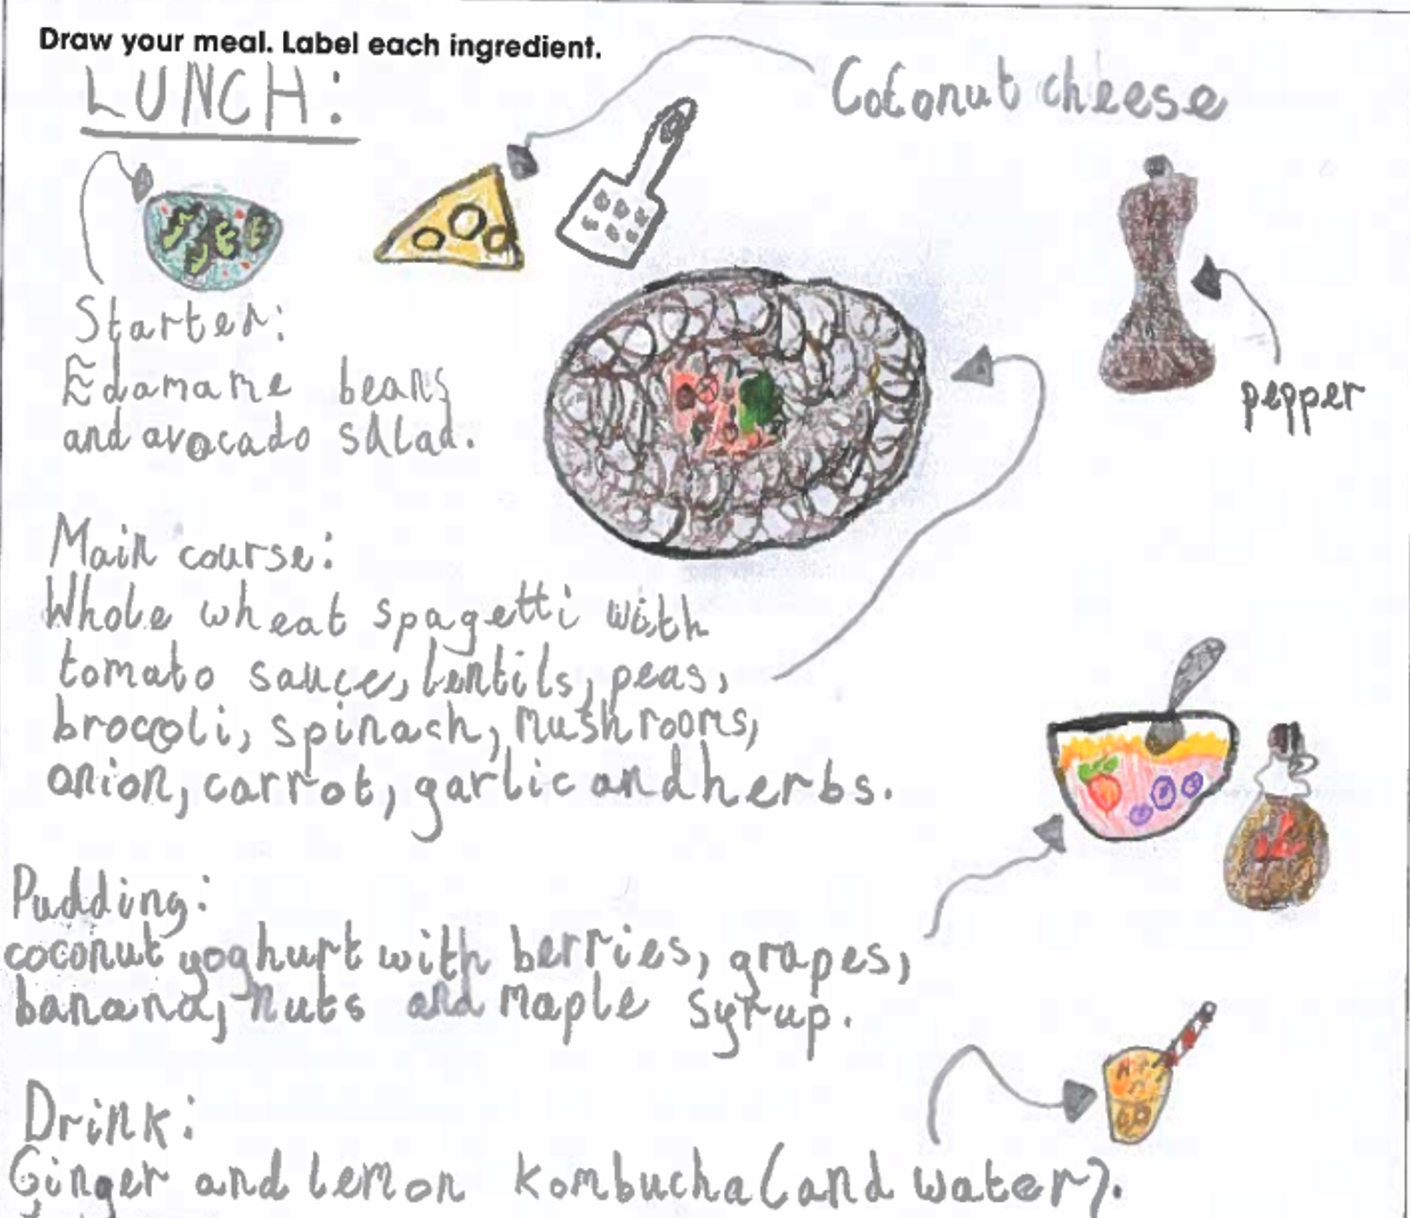 Draw your meal. Label each ingredient.
LUNCH:
Coconut cheese
pepper
Starter:
Edamame beans
and avocado salad.
Main course:
Whole wheat spagetti with
tomato sauce, lentils, peas,
broccoli, spinach, mushrooms,
onion, carrot, garlic and herbs.
Pudding:
coconut yoghurt with berries, grapes,
banana, nuts and maple syrup.
Drink:
Ginger and lemon kombucha (and water).